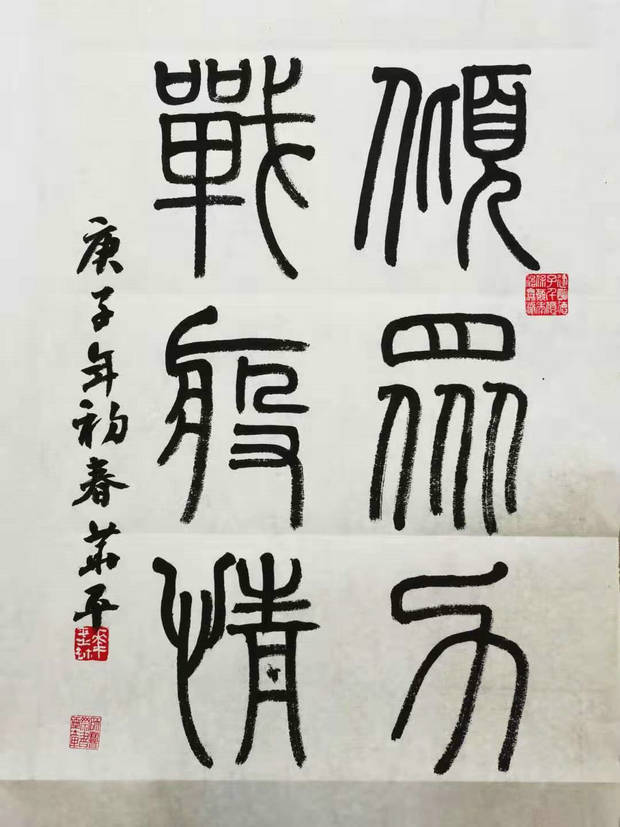 傾眾力
戰疫情
庚子年初春